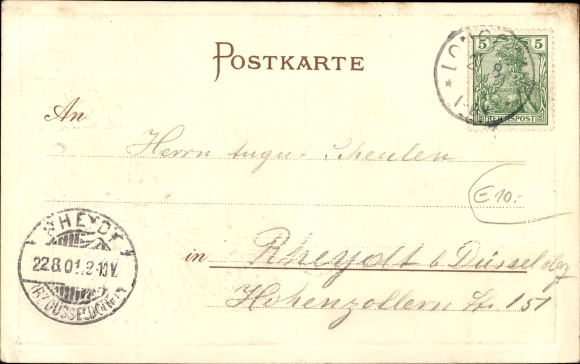 POSTKARTE
5 5
REICHSPOST
An
Herrn August Scheulen
€ 10.-
RHEYDT
22.8.01. 2-10V.
(BZ. DÜSSELDORF)
in Rheydt b Düsseldorf
Hohenzollern Str. 151